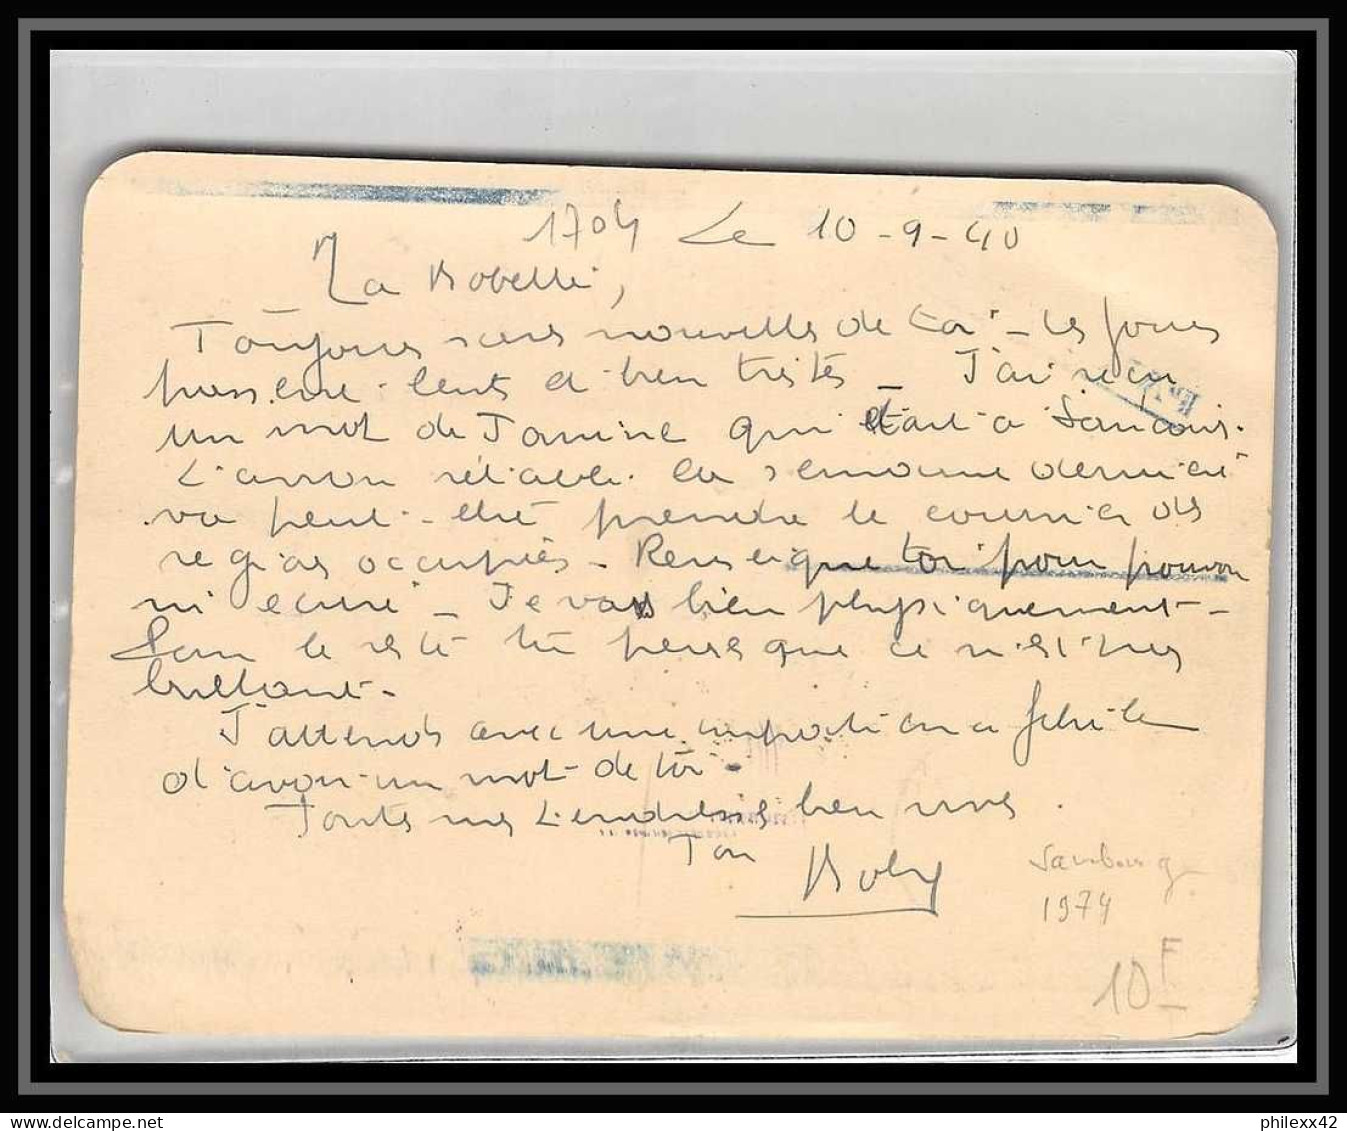 1704 Le 10-9-40
Toujours sans nouvelles de toi - Les jours
passent lents et bien tristes - J'ai reçu
un mot de Janine qui était à Sancoins.
L'avion rétabli la semaine dernière
va peut-être prendre le courrier des
régions occupées - Renseigne toi pour pouvoir
m'écrire - Je vais bien physiquement -
Pour le reste tu penses que ce n'est pas
brillant -
J'attends avec une impatience fébrile
d'avoir un mot de toi -
Toutes mes tendresses bien vives.
Ton
1974
10 F
philexx42